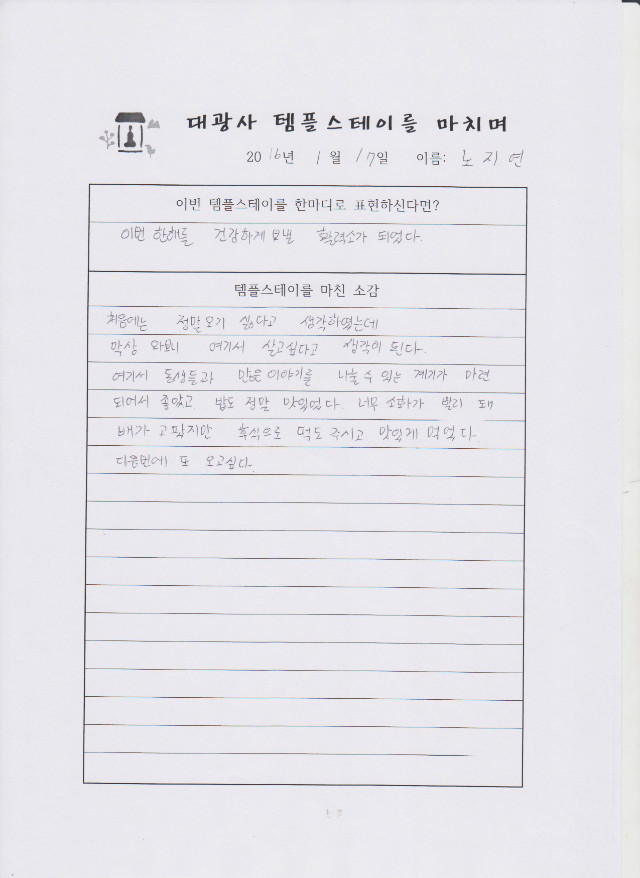 대광사 템플스테이를 마치며
2016년 1월 17일 이름: 노지연
이번 템플스테이를 한마디로 표현하신다면?
이번 한해를 건강하게 보낼 활력소가 되었다.
템플스테이를 마친 소감
처음에는 정말 오기 싫다고 생각하였는데
막상 와보니 여기서 살고싶다고 생각이 된다.
여기서 동생들과 많은 이야기를 나눌 수 있는 계기가 마련
되어서 좋았고 밥도 정말 맛있었다. 너무 소화가 빨리 돼
배가 고팠지만 후식으로 떡도 주시고 맛있게 먹었다.
다음번에 또 오고싶다.